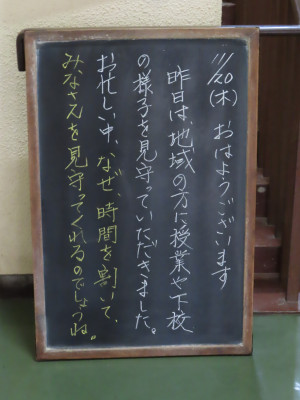 11/20(木) おはようございます
昨日は、地域の方に授業や下校
の様子を見守っていただきました。
お忙しい中、なぜ、時間を割いて、
みなさんを見守ってくれるのでしょうね。